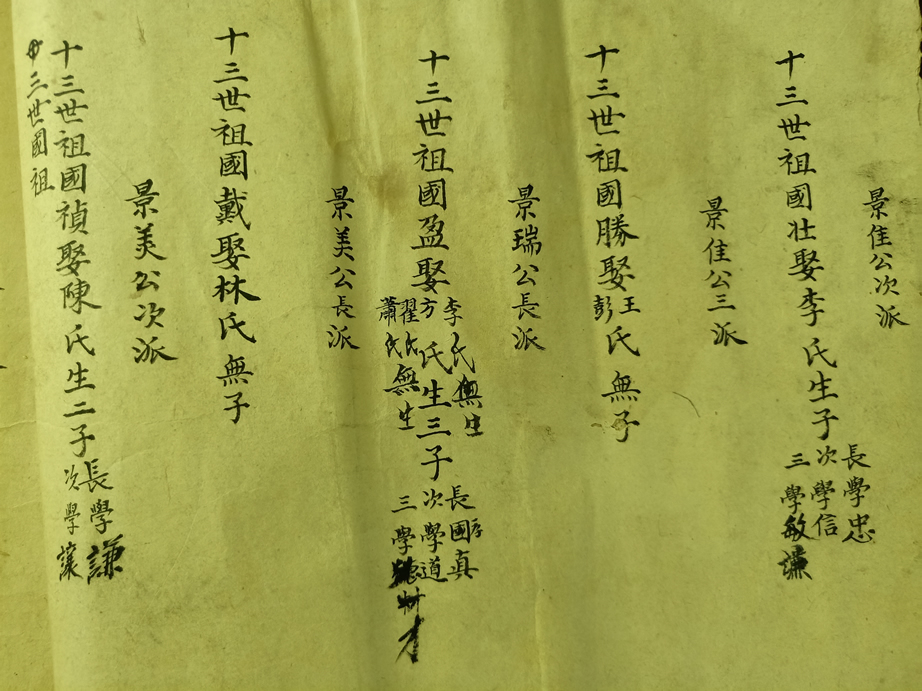 景佳公次派
十三世祖國壯娶李氏生子
長學忠
次學信
三學敏
謙
景佳公三派
十三世祖國勝娶
王
彭
氏無子
景瑞公長派
十三世祖國盈娶
李氏無生
方氏生三子
翟氏
蕭氏無生
長國真
次學道
三學
才
景美公長派
十三世祖國戴娶林氏無子
景美公次派
十三世祖國禎娶陳氏生二子
長學謙
次學讓
十三世國祖